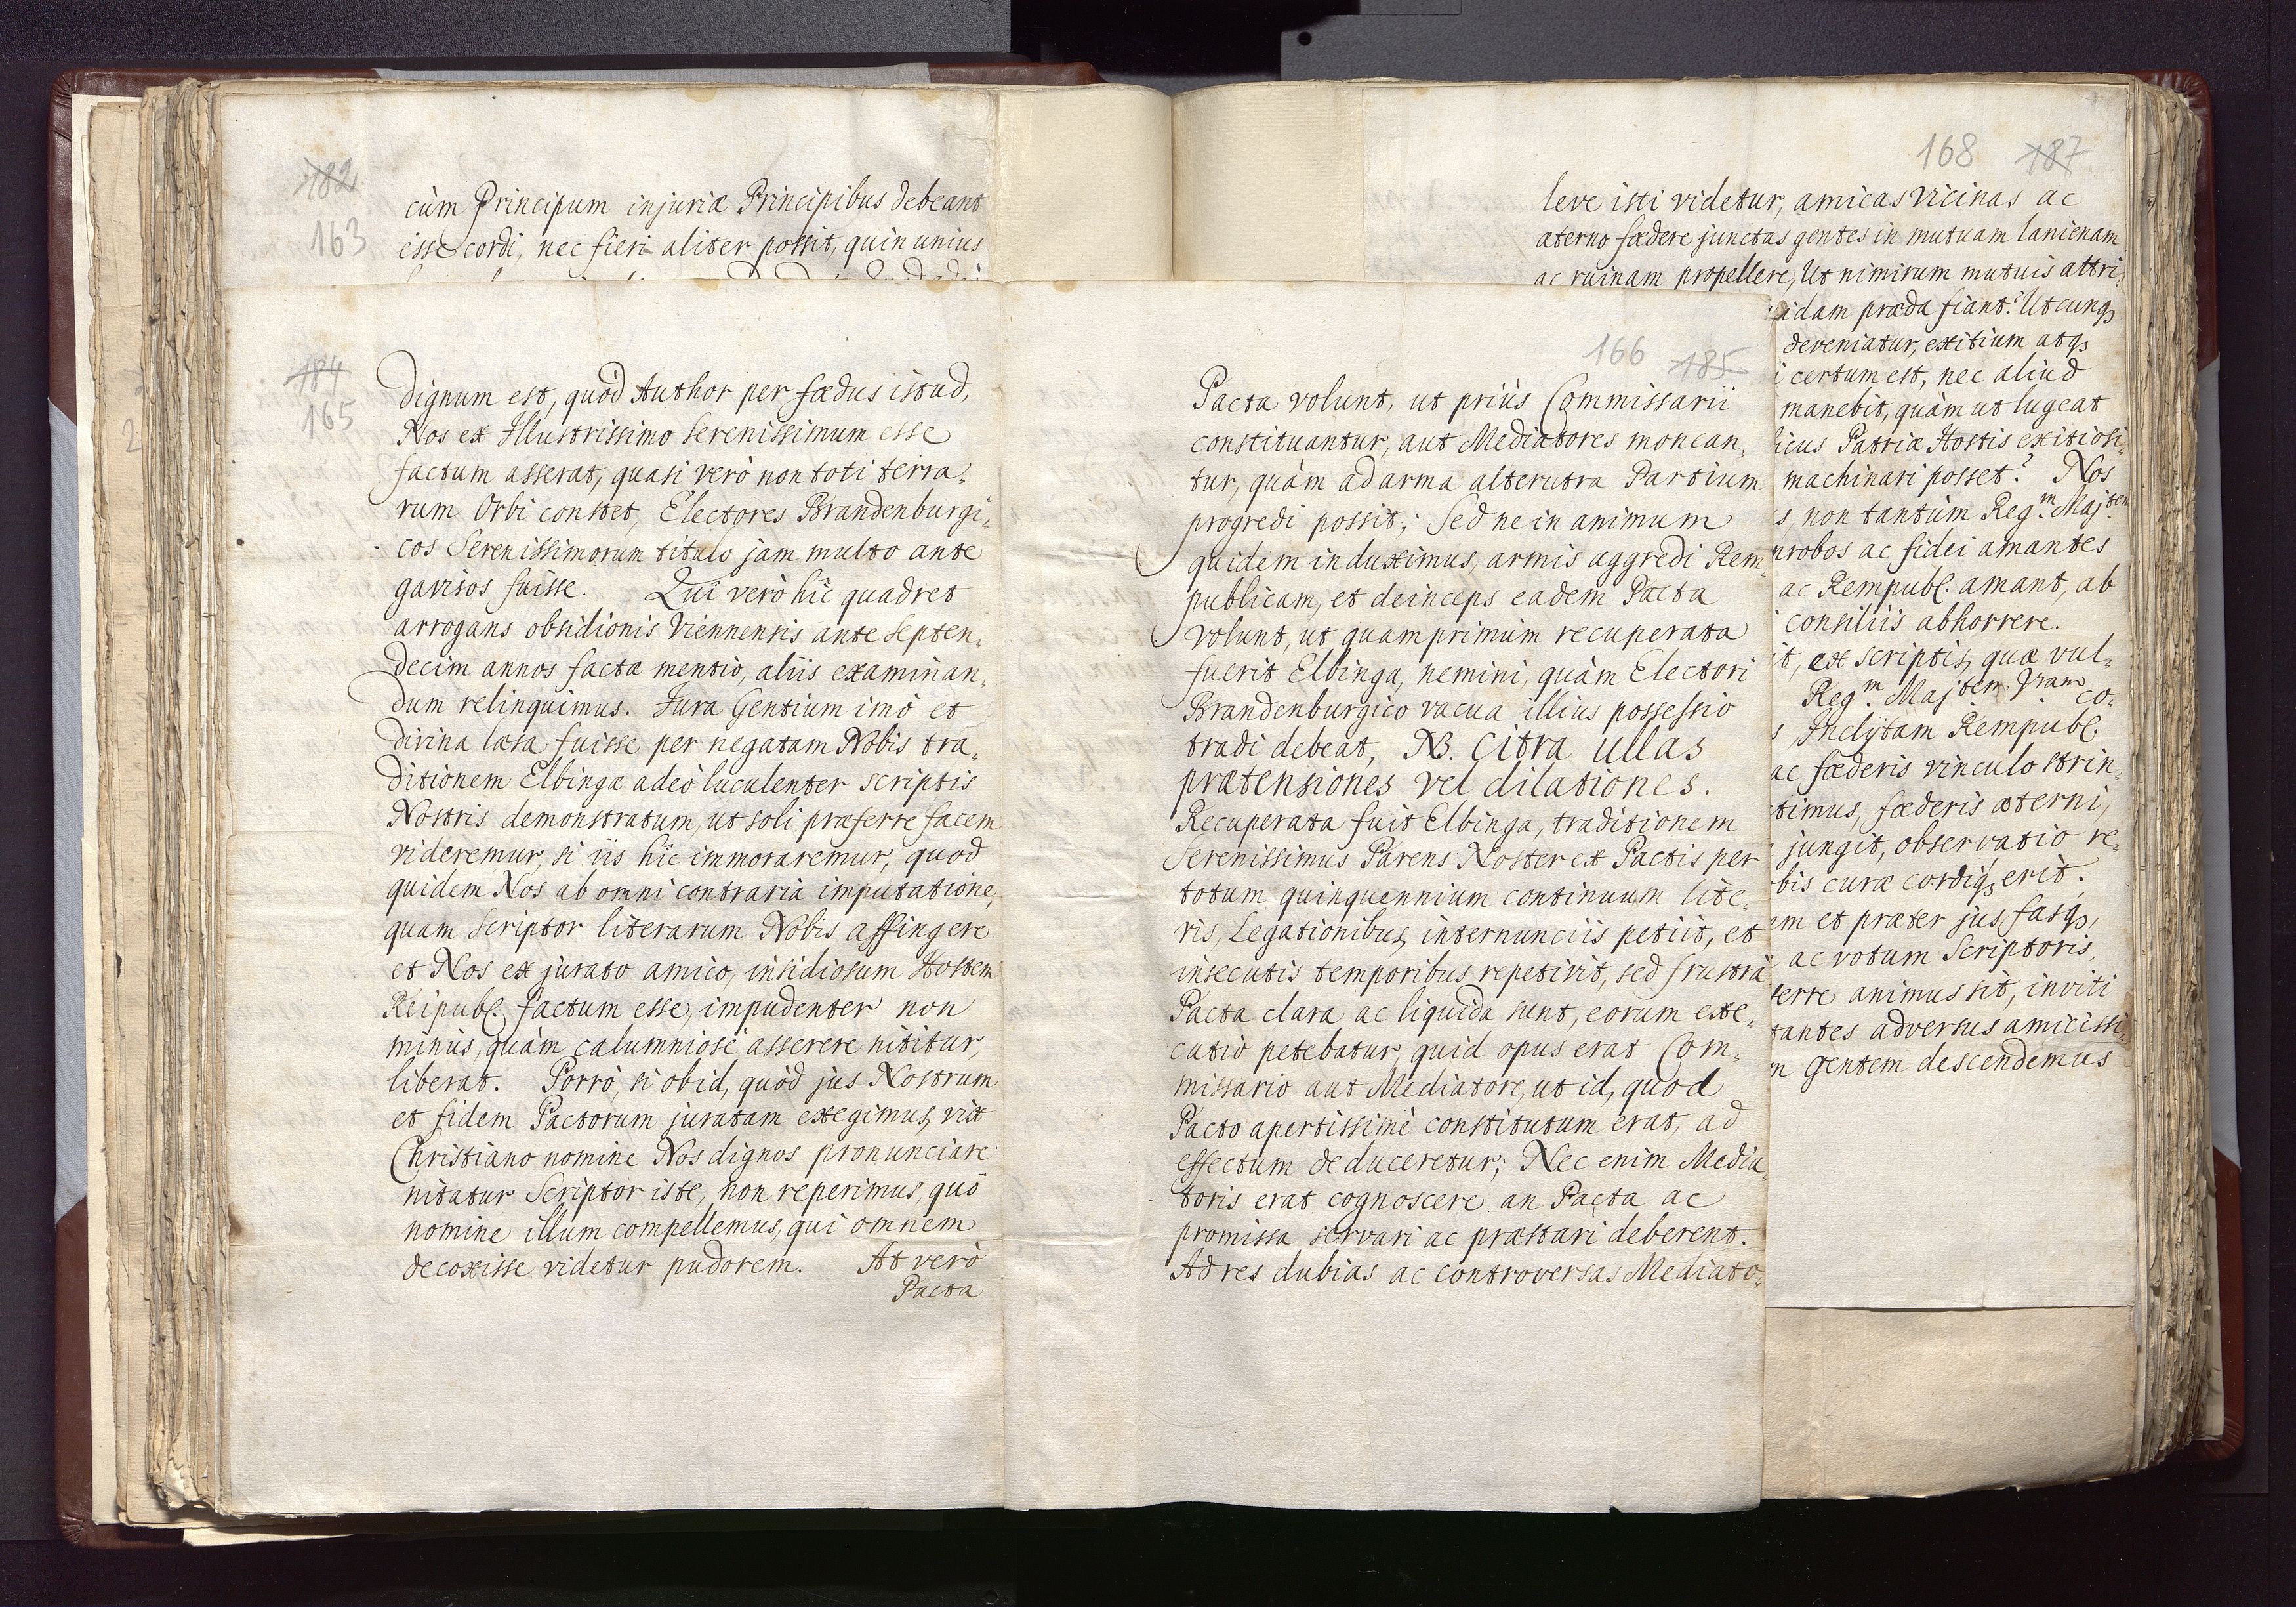 182
163
cùm Principum injuriæ Principibus debeant
esse cordi, nec fieri aliter possit, quin unius
184
165
dignum est, quòd Author per fœdus istud,
Nos ex Illustrissimo Serenissimum esse
factum asserat, quasi verò non toti terra-
rum Orbi constet, Electores Brandenburgi-
cos Serenissimorum titulo jam multo ante
gavisos fuisse. Qui verò hîc quadret
arrogans obsidionis Viennensis ante septen-
decim annos facta mentio, aliis examinan-
dum relinquimus. Jura Gentium imò et
divina læsa fuisse per negatam Nobis tra-
ditionem Elbingæ adeò luculenter scriptis
Nostris demonstratum, ut soli præferre facem
videremur, si iis hîc immoraremur, quod
quidem Nos ab omni contraria imputatione,
quam Scriptor literarum Nobis affingere
et Nos ex jurato amico, insidiosum Hostem
Reipubl. factum esse, impudenter non
minùs, quàm calumniosè asserere nititur,
liberat. Porrò, si ob id, quòd jus Nostrum
et fidem Pactorum juratam exegimus, vix
Christiano nomine Nos dignos pronunciare
nitatur Scriptor iste, non reperimus, quô
nomine illum compellemus, qui omnem
decoxisse videtur pudorem. At verò
Pacta
166 185
Pacta volunt, ut priùs Commissarii
constituantur, aut Mediatores monean-
tur, quàm ad arma alterutra Partium
progredi possit; Sed ne in animum
quidem induximus, armis aggredi Rem-
publicam, et deinceps eadem Pacta
volunt, ut quamprimùm recuperata
fuerit Elbinga, nemini, quàm Electori
Brandenburgico vacua illius possessio
tradi debeat, NB. citra ullas
prætensiones vel dilationes.
Recuperata fuit Elbinga, traditionem
Serenissimus Parens Noster ex Pactis per
totum quinquennium continuum lite-
ris, Legationibus, internunciis petiit, et
insecutis temporibus repetivit, sed frustrà
Pacta clara ac liquida sunt, eorum exe-
cutio petebatur, quid opus erat Com-
missario aut Mediatore, ut id, quod
Pacto apertissimè constitutum erat, ad
effectum deduceretur; Nec enim Media-
toris erat cognoscere an Pacta ac
promissa servari ac præstari deberent.
Ad res dubias ac controversas Mediato-
168 187
leve isti videtur, amicas vicinas ac
æterno fœdere junctas gentes in mutuam lanienam
ac ruinam propellere, Ut nimirum mutuis attri-
idam præda fiant? Utcunq3
deveniatur, exitium atq3
i certum est, nec aliud
manebit, quàm ut lugeat
licus Patriæ Hostis exitiosi-
machinari posset? Nos
s, non tantùm Reg.m Maj.tem
probos ac fidei amantes
ac Rempubl. amant, ab
consiliis abhorrere.
it, ex scriptis, quæ vul-
Reg.m Maj.tem Vram co-
s, Inclytam Rempubl.
ac fœderis vinculo strin-
timus, fœderis æterni,
jungit, observatio re-
bis curæ cordiq3 erit.
em et præter jus fasq3,
ac votum Scriptoris,
ferre animus sit, inviti
tantes adversus amicissi-
m gentem descendemus